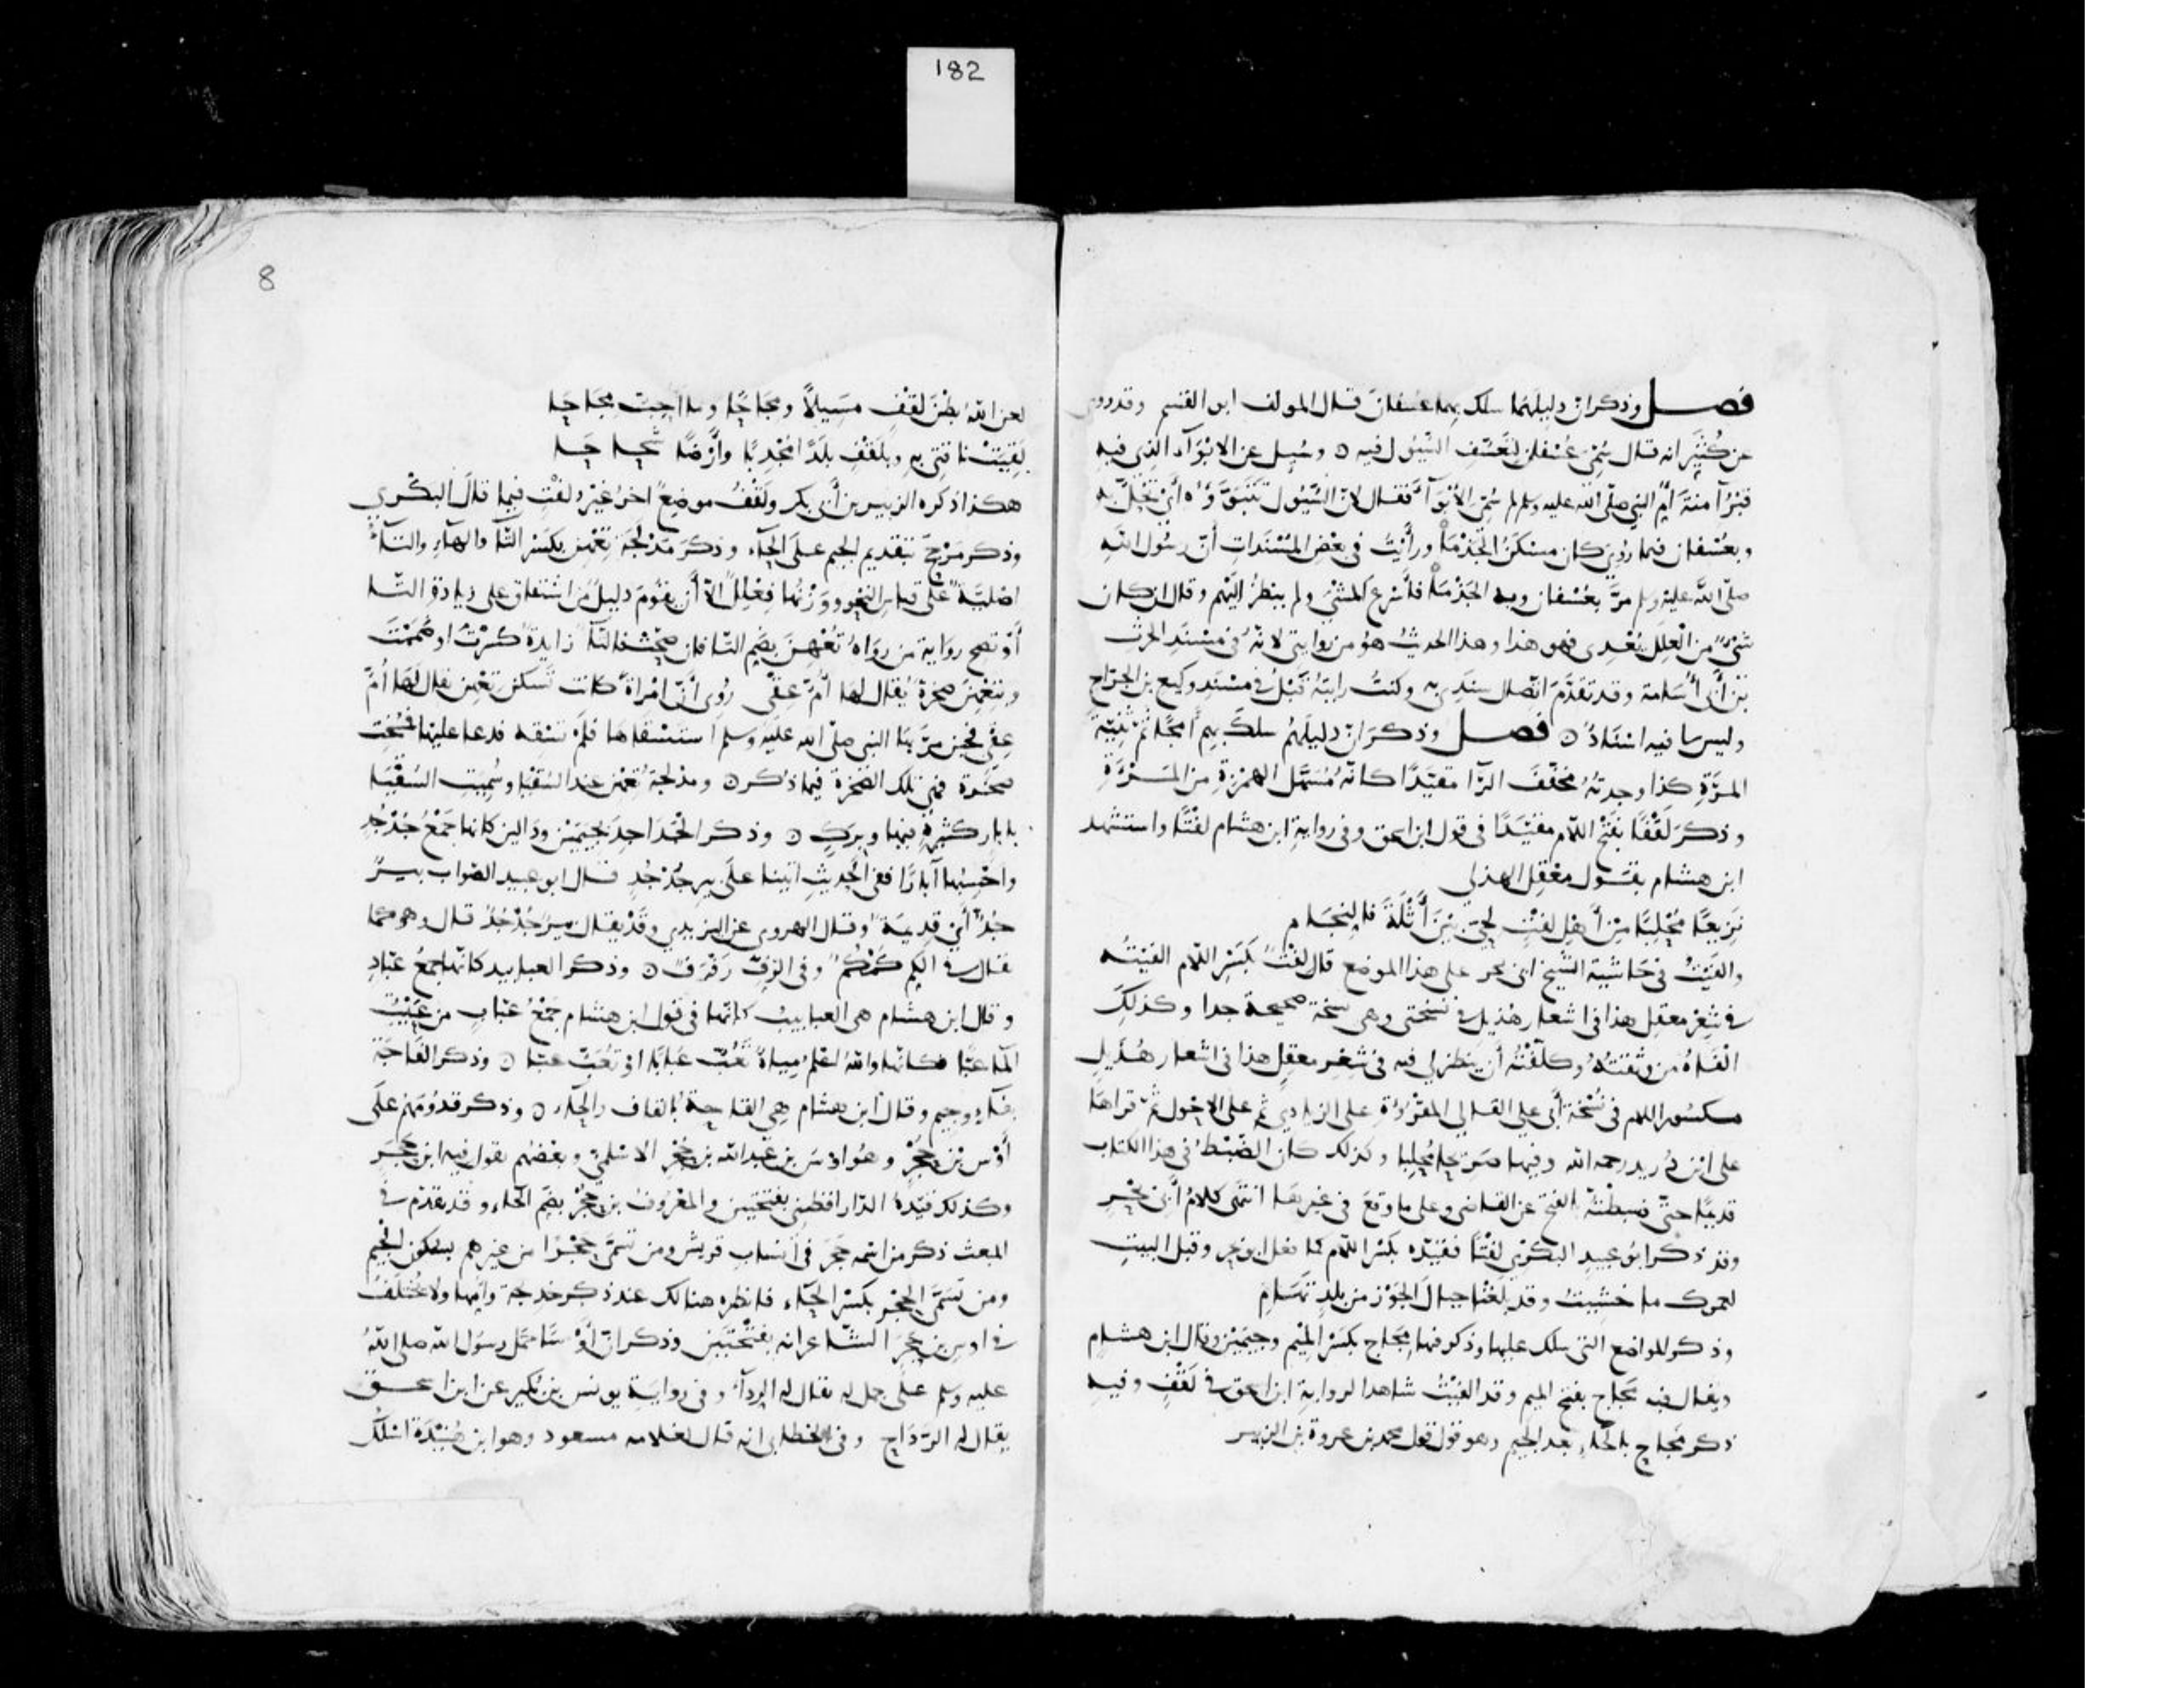 182
فصل وذكر ان دليلهما سلك بهما عسفان قال المولف ابو القسم وقد روى
عن كُثَيِّر انه قال سُمِّيَ عُسْفان لتَعَسُّفِ السُّيُول فيه ٥ وسُئل عن الابْوَآءِ الذي فيه
قبْرُ آمنةَ أُمِّ النبي صلى الله عليه وسلم لم سُمِّيَ الأبْوَآءَ فقال لانّ السُّيُول تَتَبَوَّؤُه أي تَحُلّ به
وبعُسْفان فيما رُوِيَ كان مسْكَنُ الجَذْمَآ ورأَيْتُ في بعْضِ المُسْنَداتِ أنّ رسُول اللهِ
صلى الله عليه وسلم مرَّ بعُسْفان وبه الجَذْمَآ فأَسْرع المشْيَ ولم ينظُرْ اليْهم وقال ان كان
شيْءٌ من العِلَلِ يُعْدِي فهو هذا وهذا الحديثُ هُو من روايتي لانّهُ في مسْنَدِ الحرثِ
بن أَبي أُسَامة وقد تقدَّمَ اتِّصال سندِي به وكنتُ رايتهُ قَبْلُ في مسْنَدِ وكيع بن الجرّاحِ
وليس ما فيه اسْنَادٌ ٥ فصل وذكَرَ انّ دليلَهُم سلكَ بهم أمَجًا ثم ثَنِيّةَ
المرَةِ كذا وجدتهُ مخفّفَ الرّآ مقيّدًا كانّهُ مُسَهَّل الهمْزةِ من المرْأَةِ
وذكرَ لَقْفًا بفَتْحِ اللّام مقيّدًا في قول ابن اسحق وفي روايةِ ابن هشام لفْتًا واستشهد
ابن هشام بقول معْقِل الهذلي
نَزِيعًا مُحْلِبًا مِنْ أَهْلِ لِفْتٍ لِحَيّ بَيْنَ أَثْلَةَ فالنِّجَام
والفَيْتُ في حَاشيَة الشّيخ ابي بحر على هذا الموضع قال لِفْتٌ بكَسْرِ اللّام الفيْتُه
في شِعْرِ معقِل هذا في اشعار هُذيل في نسْختي وهي نسخة صحيحة جدا وكذلِكَ
الْفَاهُ من وثقْتُهُ وكلّفْتُه أن ينظر لي فيه في شِعْرِ معقِل هذا في اشعار هُذَيلٍ
مكسُور اللام في نُسْخة أَبي علي القالي المقْرُوءةِ على الزيادي ثم على الاحْول ثمّ قراها
على ابْن دُريد رحمه الله وفيها صَرِيحا مُحْلبا وكذلك كان الضّبْطُ في هذا الكتاب
قديمًا حتّى ضبطْتهُ بالفتح عن القاضي وعلى ما وقَعَ في غيرها انتهى كلامُ أَبي بحْرٍ
وقد ذكَر ابُو عبيدٍ البكري لِفْتًا فقيّده بكَسْر اللّام كما فعل ابو بحر وقبل البيت
لعمرك ما خشِيتُ وقد بلَغْنا جبالَ الجَوْز من بلدٍ تهَامِ
وذكر المواضع التي سلك عليها وذكر فيها مِجَاج بكسْر المِيْم وجيمَيْن وقال ابن هشام
ويقال فيه مَجَاج بفتح الميم وقد الفَيْتُ شاهدا لرواية ابن اسحق في لَقْفٍ وفيهِ
ذكر مَجَاح بالحآء بعد الجيم وهو قول محمد بن عروة بن الزبير
8
لعن اللهُ بطْنَ لَقْفٍ مسَيلًا ومَجَاحًا وما أُحِبّ مَجَاحَا
لَقِيَتْ نَاقتي به وبلَقْفٍ بلَدًا مُجْدِبًا وأَرْضًا شَحَاحَا
هكذا ذكره الزبير بن أَبي بكر ولَقْفُ موضعٌ اخرُ غيْرُ لفْتٍ فيما قال البكْري
وذكر مَرْجَحَ بتقديم الجيم على الحآء وذكرَ مَدْلَجَةَ تِعْهِنَ بكَسْرِ التّآ والهآءِ والتآءُ
اصْليّةٌ على قياس النّحو ووَزْنُها فِعْلِلٌ الّا أَن يقُومَ دليلٌ من اشتقاق على زيادةِ التّا
أَوْ تصحّ روَاية من روَاهُ تُعْهِنَ بضَمِ التّا فان صحّت فالتّآ زايدةٌ كُسِرَتْ او ضُمَّتْ
وبتِعْهِنَ صخرَةٌ يُقالُ لها أُمُّ عِقْي رُوي أَنّ امْرأةً كانت تسْكن تِعْهِن يقال لها أُمُّ
عِقْي فحين مرَّ بها النبي صلى الله عليه وسلم اسْتَسْقاها فلم تسْقِه فدعا عليها فمُسِخَت
صخْرة فهي تلك الصّخرة فيما ذكر ٥ ومدلجة تعْهن عند السُّقيا وسُمّيت السُّقْيَا
بابار كثيرة فيها وبرَك ٥ وذكر الجَدَاجِدَ بجيمَيْن ودَالين كانها جَمْعُ جُدْجُد
واحْسِبُها آبارًا ففي الحديثِ اتينا على بيرٍ جُدْجُدٍ قال ابو عبيد الصّواب بيرٌ
جُدٌّ أَي قديمَة وقال الهروي عن اليزيدي وقَدْ يقال بيرٌ جُدْجُدٌ قال وهو كما
يقال في الكمِّ كُمْكُمٌ وفي الرّفّ رَفْرفٌ ٥ وذكر العبابيد كانّها جَمْعُ عَبّادٍ
وقال ابن هشام هي العبابيب كانّها في قول ابن هشام جَمْعُ عَبّابٍ من عَبَبْتُ
المآ عبًّا فكانها والله اعْلَمُ مِيَاهٌ تُعَبُّ عبابًا او تُعَبّ عبًّا ٥ وذكر الفَاجَّةَ
بفآءٍ وجيم وقال ابن هشام هي القَاحةُ بالقاف والحآء ٥ وذكر قدُومَهم على
أَوْسِ بْن حُجْرٍ وهُو اوْسُ بن عبد الله بن حُجْرٍ الاسْلميّ وبعْضُهم يقول فيه ابن حَجَر
وكذلك قيّدهُ الدّارقطنِي بفتحتين والمعْروف بن حُجْر بضمّ الحآء وقد تقدّم في
المبعث ذكر من اسمه حَجَر في أنسابِ قريش ومن تسمّى حُجْرًا من غيرهم بسكون الجيم
ومن تسَمّى الحِجْر بكسْر الحآء فانظره هنالك عند ذكر خديجة وامّها ولا يُخْتلَفُ
في اوس بن حجر الشّاعر انه بفتْحَتيْن وذكر انّ أَوْسًا حمل رسول الله صلى اللهُ
عليه وسلم على جمل له يقال له الردآء وفي روايةِ يونس بن بُكير عن ابن اسحق
يقال له الرّدَاح وفي الخطابي انه قال لغلامه مسعود وهو ابن هُنَيْدَةَ اسْلُكْ